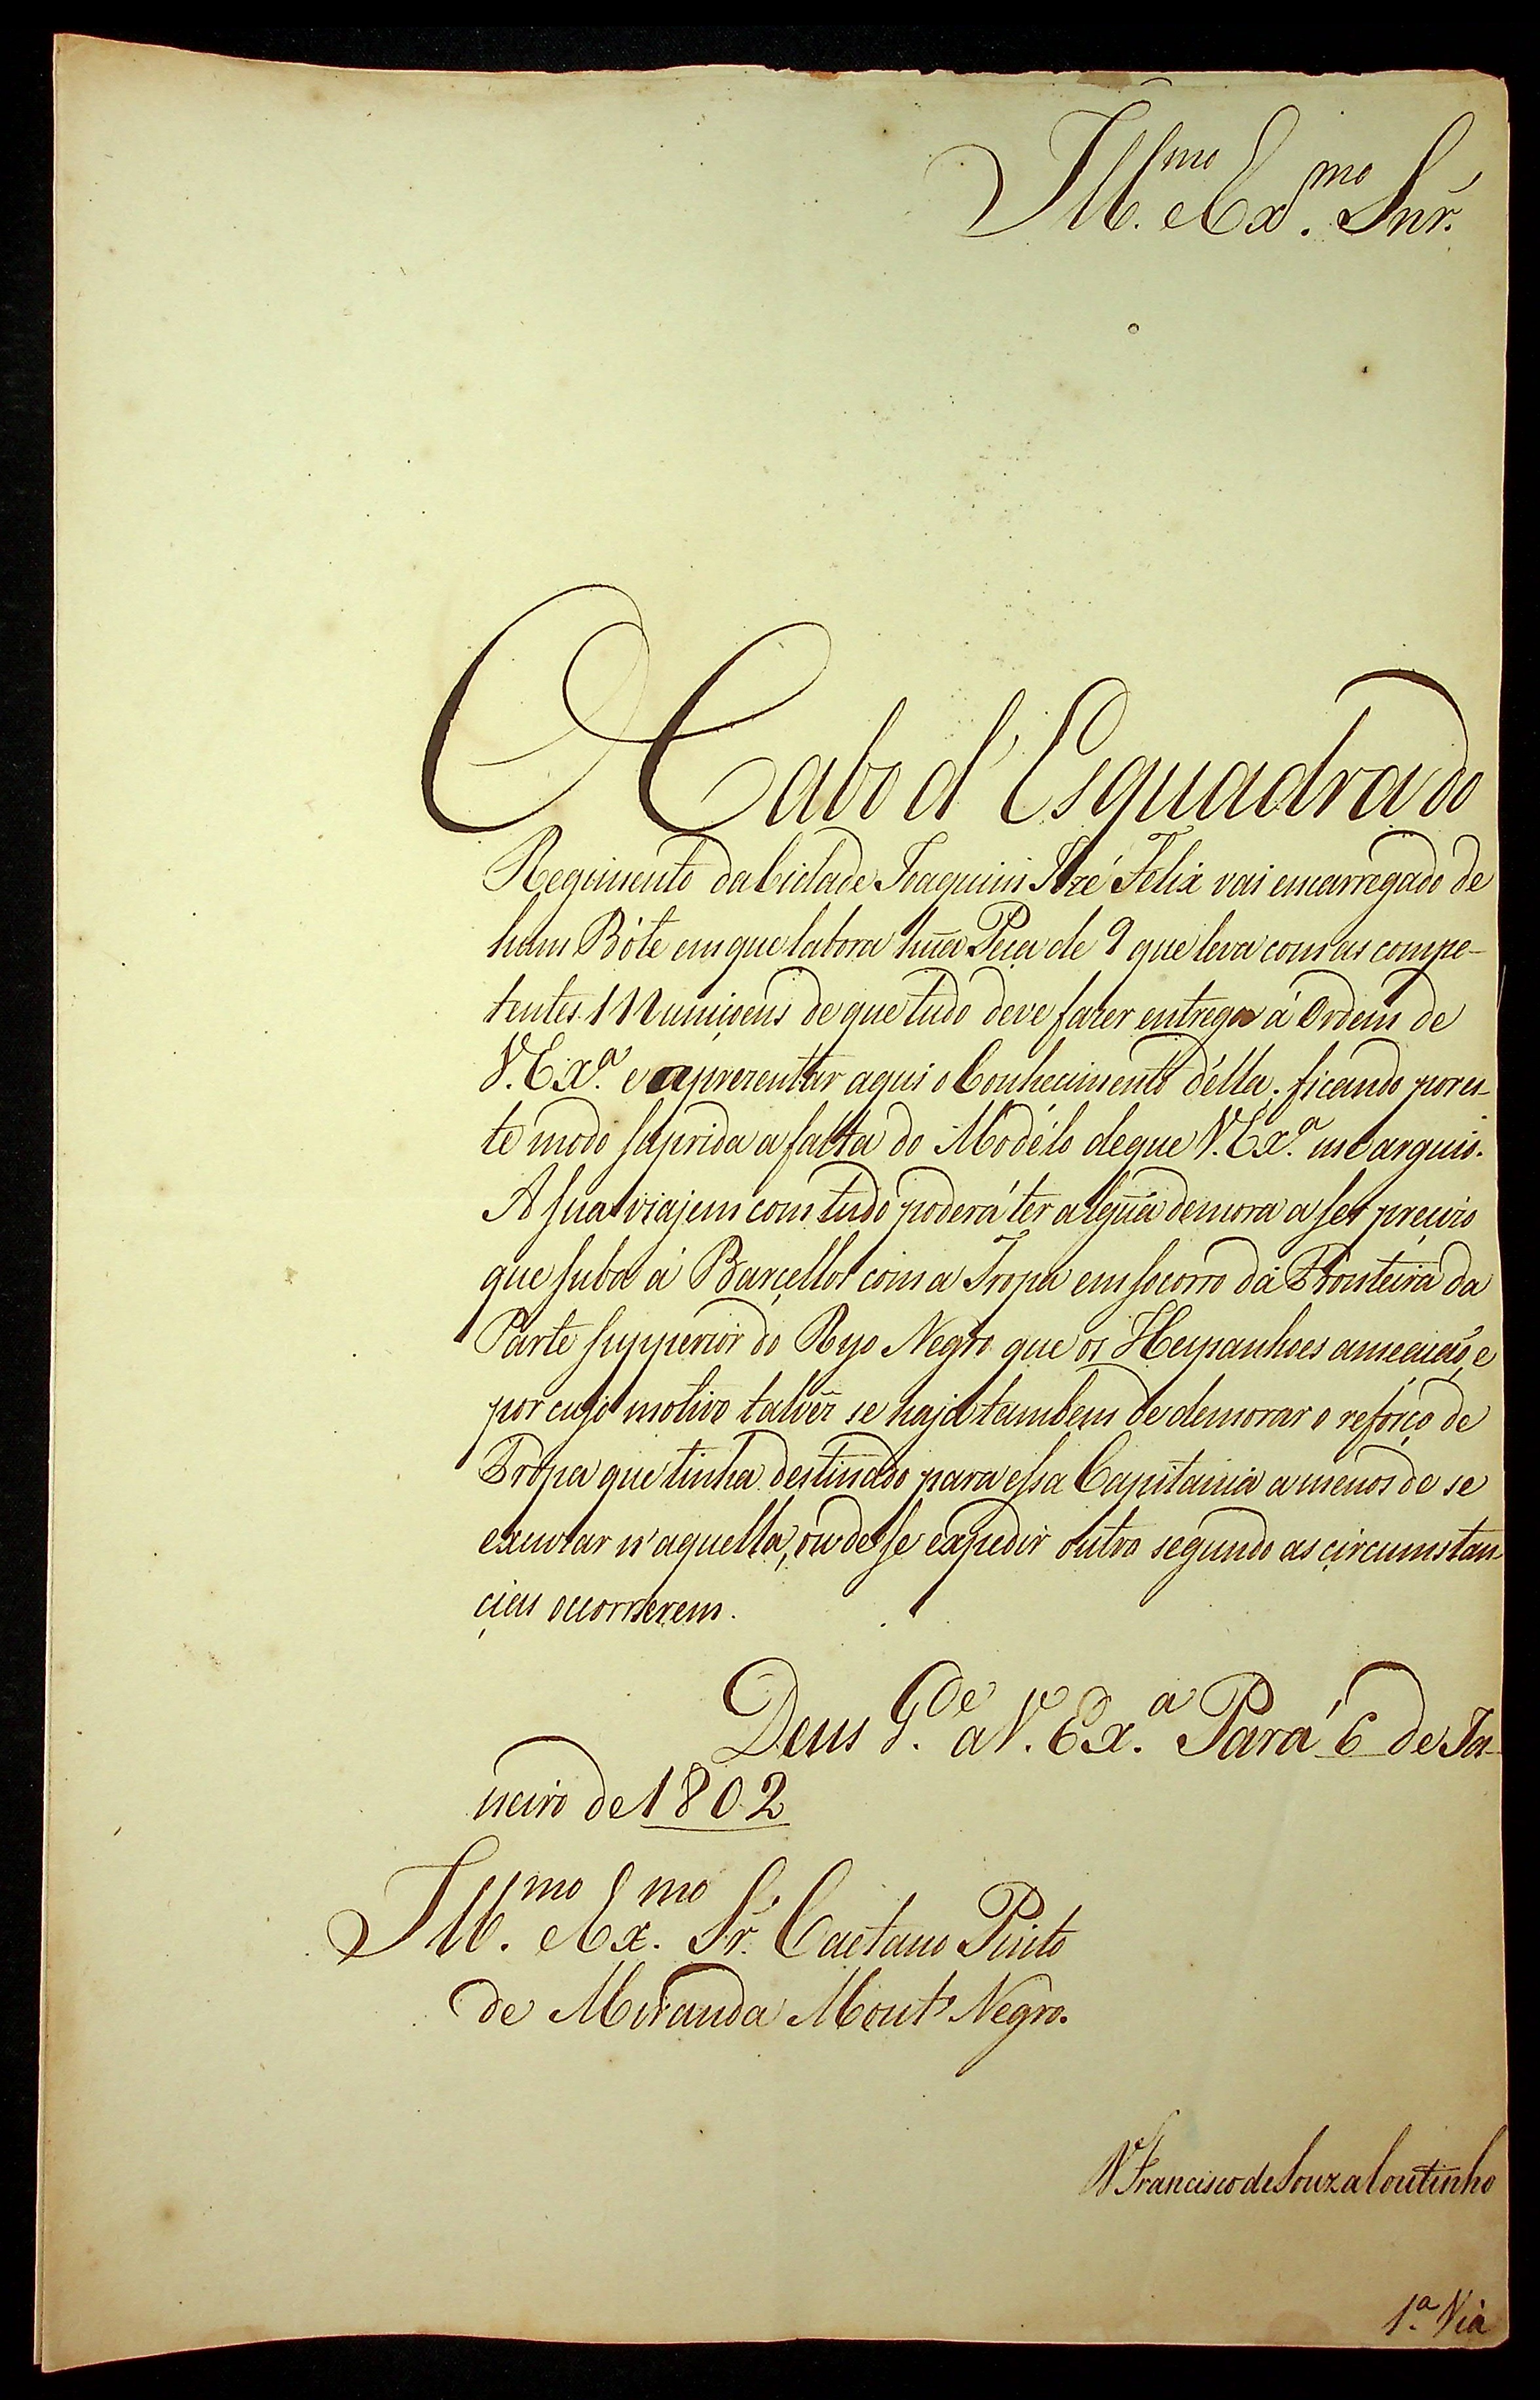 Ill.mo e Ex.mo Snr.
O Cabo d'Esquadra do
Regimento da Cidade Joaquim Jozé Felix vai encarregado de
hum Bóte em que labora hũa Peça de 9 que leva com as compe-
tentes Muniçoens de que tudo deve fazer entrega á Ordem de
V. Ex.a e aprezentar aqui o Conhecimento d'ella, ficando por es-
te modo suprida a falta do Modélo de que V. Ex.a me arguio.
A sua viajem com tudo poderá ter algũa demora a ser preciso
que suba á Barçellos com a Tropa em socorro da Fronteira da
Parte supperior do Ryo Negro que os Hespanhoes ameação, e
por cujo motivo talvêz se haja tambem de demorar o reforço de
Tropa que tinha destinado para essa Capitania a menos de se
excuzar n'aquella, ou de se expedir outro segundo as circumstan-
çias occorrerem.
Deus G.de a V. Ex.a Pará 6 de Ja-
neiro de 1802
Ill.mo e Ex.mo Sr. Caetano Pinto
de Miranda Monte Negro.
D. Francisco de Souza Coutinho
1.a Via